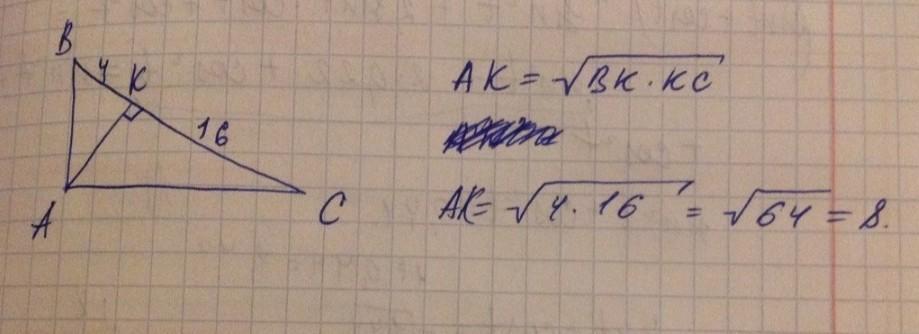 B
4
K
16
A
C
AK = √BK · KC
AK = √4 · 16 = √64 = 8.